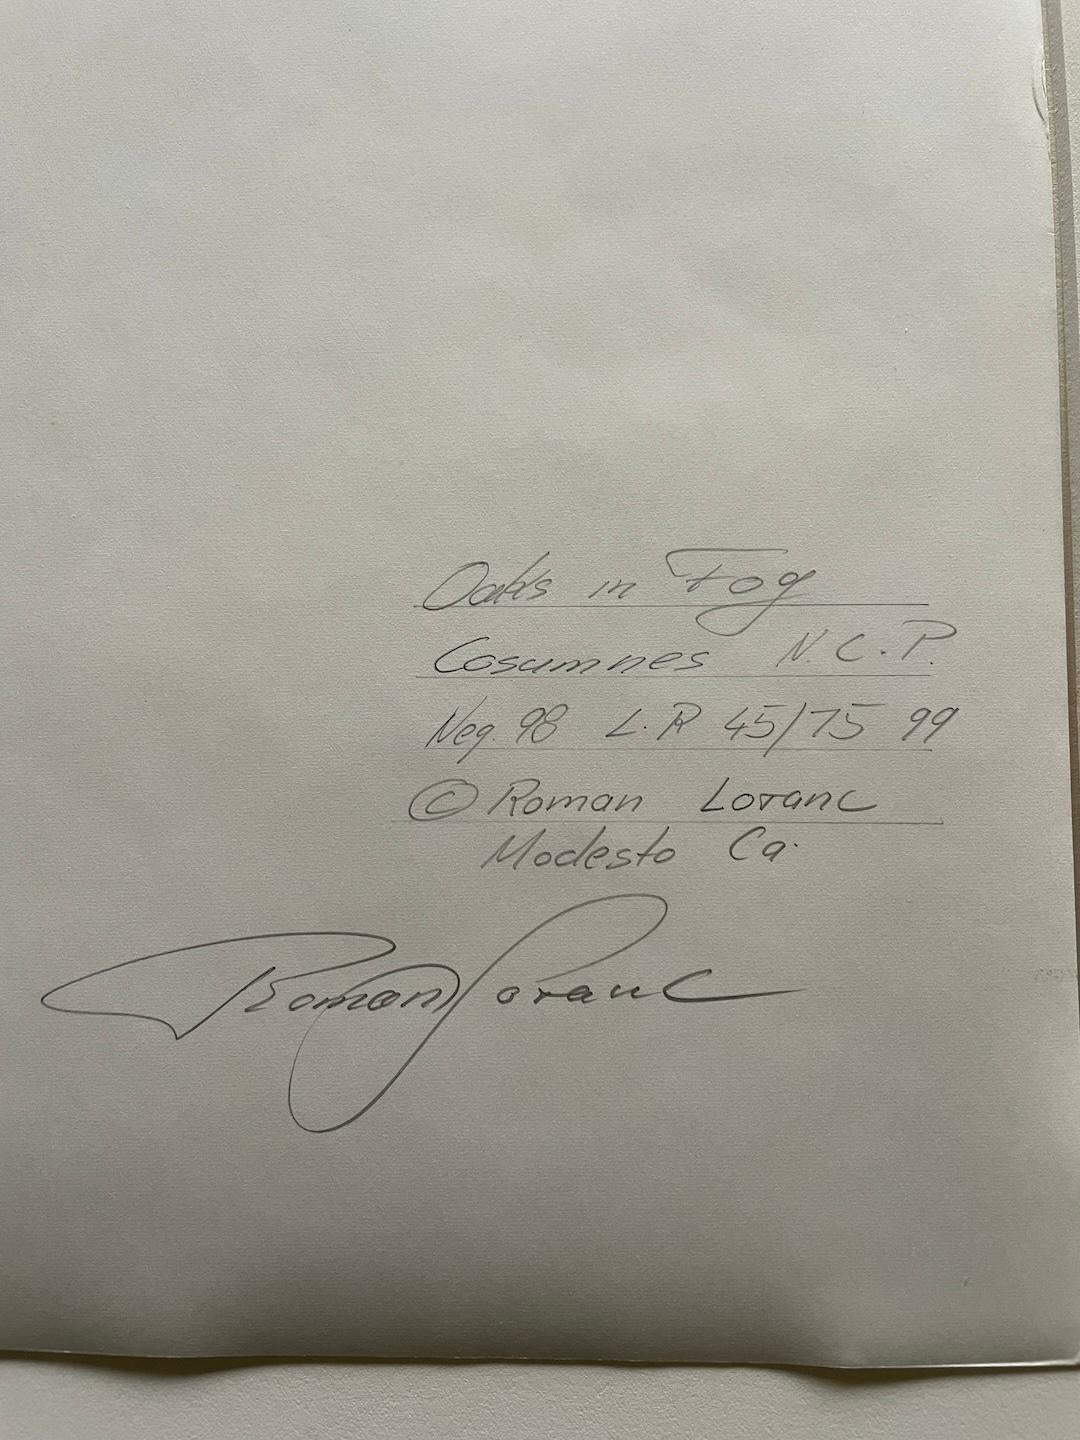 Oaks in Fog
Cosumnes N.C.P.
Neg. 98 L.R 45/75 99
© Roman Loranc
Modesto Ca.
Roman Loranc